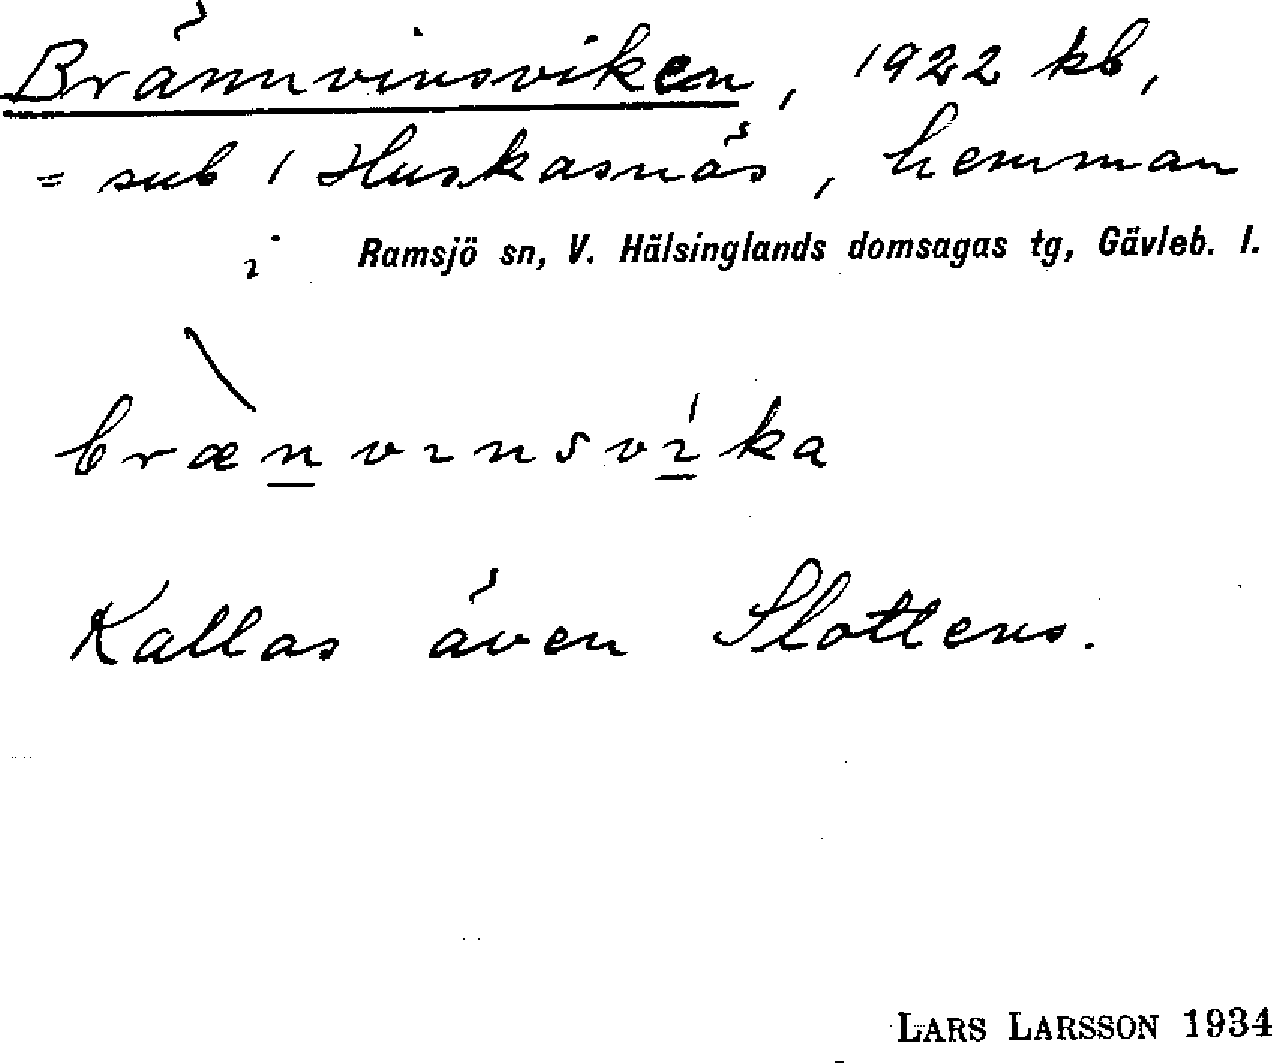 Brännvinsviken, 1922 kb,
= sub 1 Huskasnäs, hemman
i Ramsjö sn, V. Hälsinglands domsagas tg, Gävleb. l.
brænvinsvika
Kallas även Slottens.
LARS LARSSON 1934